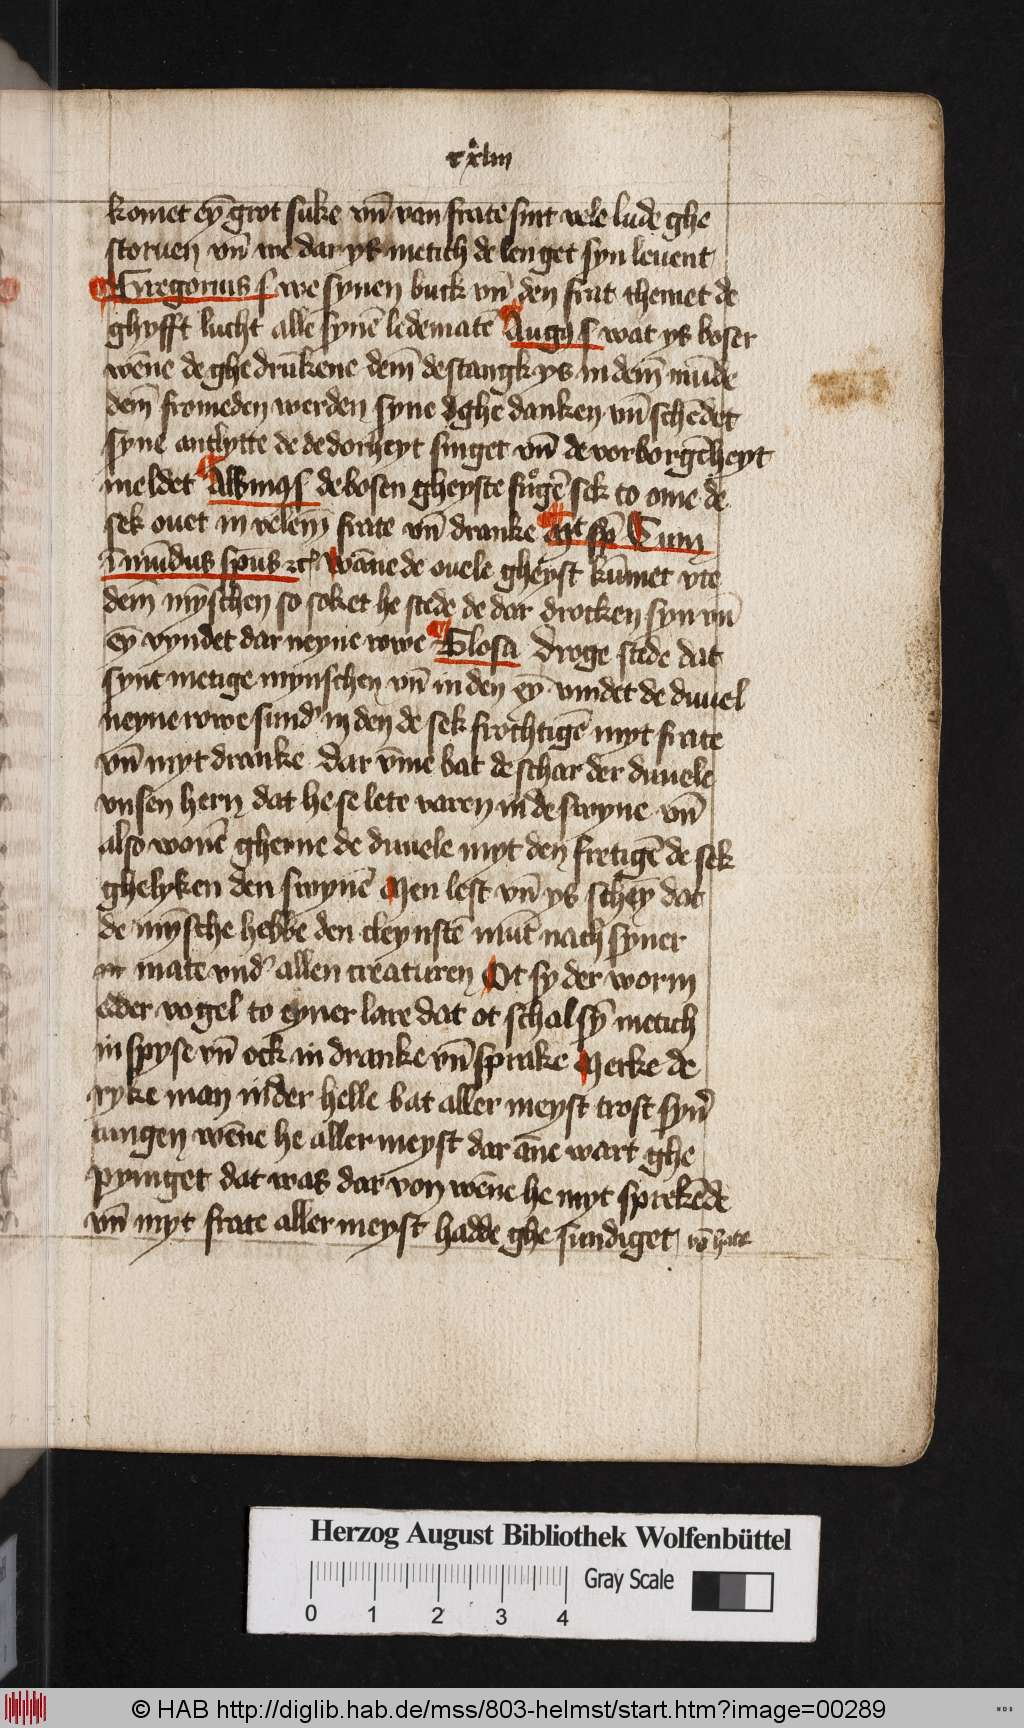 cxliii
komet eȳ grot suke vn̄ van frate sint vele lude ghe
storuen vn̄ we dar ys metich de lenget syn leuent
Gregorius s we synen buck vn̄ den frat themet de
ghyfft lucht alle synē ledematē Augꝰ s wat ys boser
wēne de ghedrūkene dem̄ de stangk ys in dem̄ mūde
dem̄ fromeden werden syne dghe danken vn̄ schēdet
syne antlytte de de dorheyt singet vn̄ de vorborgēheyt
meldet Albinꝰ s de bosen gheyste fůgē sek to ome de
sek ouet in velem̄ frate vn̄ dranke Cum
ī mūdus spūs ꝛc wāne de ouele gheyst kūmet vte
dem̄ mȳschen so soket he stede de dar drocken syn vn̄
eȳ vyndet dar neyne rowe Glosa Droge stede dat
synt metige mynschen vn̄ in den eȳ vindet de duuel
neyne rowe sundʼ in den de sek frochtigē myt frate
vn̄ myt dranke Dar vm̄e bat de schar der duuele
vnsen hern dat he se lete varen in de swyne vn̄
also wonē gherne de duuele myt den fretigē de sek
ghelyken den swynē Men lest vn̄ ys schēy dat
de mȳsche hebbe den cleynstē mūt nach syner
mate vndʼ allen creaturen Ot sy der worm
edder vogel to eyner lare dat ot schal sȳ metich
in spyse vn̄ ock in dranke vn̄ sprake Merke de
ryke man in der helle bat aller meyst trost synʼ
tungen wēne he aller meyst dar āne wart ghe
pyniget dat was dar von wēne he myt sprekēde
vn̄ myt frate aller meyst hadde ghe sundiget
Herzog August Bibliothek Wolfenbüttel
Gray Scale
0 1 2 3 4
© HAB http://diglib.hab.de/mss/803-helmst/start.htm?image=00289